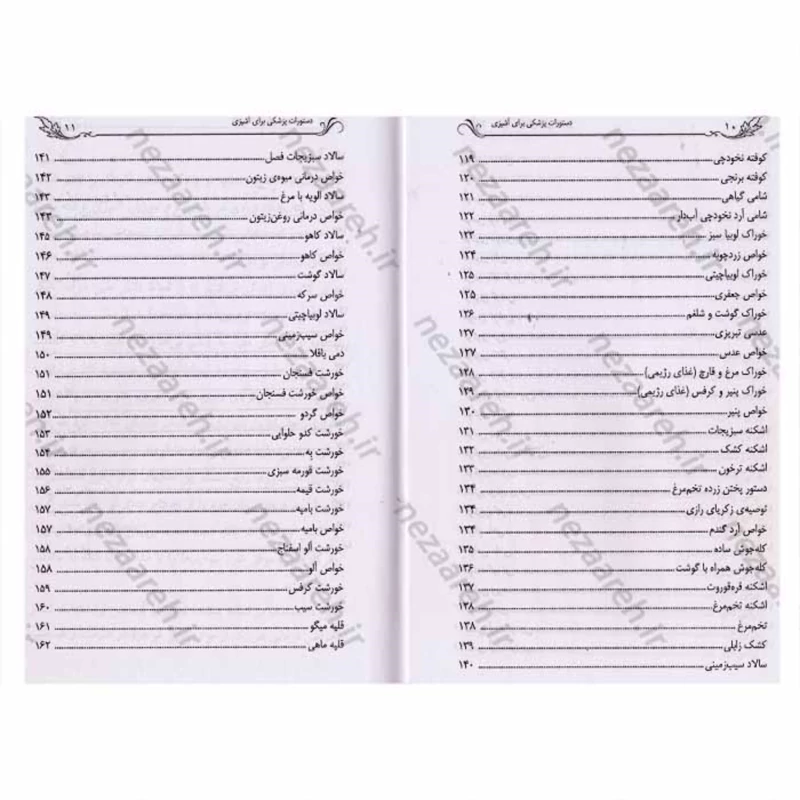 ۱۰ دستورات پزشکی برای آشپزی
کوفته نخودچی ۱۱۹
کوفته برنجی ۱۲۰
شامی گیاهی ۱۲۱
شامی آرد نخودچی آب‌دار ۱۲۲
خوراک لوبیا سبز ۱۲۳
خواص زردچوبه ۱۲۴
خوراک لوبیاچیتی ۱۲۵
خواص جعفری ۱۲۵
خوراک گوشت و شلغم ۱۲۶
عدسی تبریزی ۱۲۷
خواص عدس ۱۲۷
خوراک مرغ و قارچ (غذای رژیمی) ۱۲۸
خوراک پنیر و کرفس (غذای رژیمی) ۱۲۹
خواص پنیر ۱۳۰
اشکنه سبزیجات ۱۳۱
اشکنه کشک ۱۳۲
اشکنه ترخون ۱۳۳
دستور پختن زرده تخم‌مرغ ۱۳۴
توصیه‌ی زکریای رازی ۱۳۴
خواص آرد گندم ۱۳۴
کله‌جوش ساده ۱۳۵
کله‌جوش همراه با گوشت ۱۳۶
اشکنه قره‌قوروت ۱۳۷
اشکنه تخم‌مرغ ۱۳۸
تخم‌مرغ ۱۳۸
کشک زابلی ۱۳۹
سالاد سیب‌زمینی ۱۴۰
دستورات پزشکی برای آشپزی ۱۱
سالاد سبزیجات فصل ۱۴۱
خواص درمانی میوه‌ی زیتون ۱۴۲
سالاد الویه با مرغ ۱۴۳
خواص درمانی روغن‌زیتون ۱۴۳
سالاد کاهو ۱۴۵
خواص کاهو ۱۴۶
سالاد گوشت ۱۴۷
خواص سرکه ۱۴۸
سالاد لوبیاچیتی ۱۴۹
خواص سیب‌زمینی ۱۴۹
دمی باقلا ۱۵۰
خورشت فسنجان ۱۵۱
خواص خورشت فسنجان ۱۵۱
خواص گردو ۱۵۲
خورشت کدو حلوایی ۱۵۳
خورشت به ۱۵۴
خورشت قورمه سبزی ۱۵۵
خورشت قیمه ۱۵۶
خورشت بامیه ۱۵۷
خواص بامیه ۱۵۷
خورشت آلو اسفناج ۱۵۸
خواص آلو ۱۵۸
خورشت کرفس ۱۵۹
خورشت سیب ۱۶۰
قلیه میگو ۱۶۱
قلیه ماهی ۱۶۲
nezaareh.ir